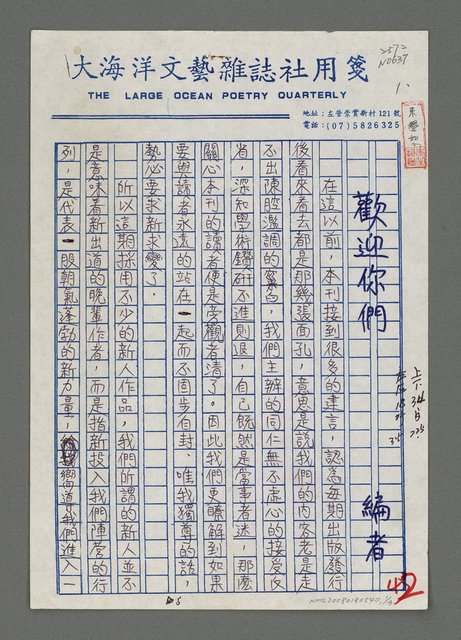 大海洋文藝雜誌社用箋
THE LARGE OCEAN POETRY QUARTERLY
地址：左營崇實新村121號
電話：(07)5826325
1.
歡迎你們
編者
在這以前，本刊接到很多的建言，認為每期出版發行
後看來看去都是那幾張面孔，意思是說我們的內容老是走
不出陳腔濫調的窠臼，我們主辦的同仁無不虛心的接受反
省，深知學術鑽研不進則退，自己既然是當事者迷，那麼
關心本刊的讀者便是旁觀者清了。因此我們更瞭解到如果
要與讀者永遠的站在一起而不固步自封、唯我獨尊的話，
勢必要求新求變了。
所以這期採用不少的新人作品，我們所謂的新人並不
是意味着新出道的晚輩作者，而是指新投入我們陣營的行
列，是代表一股朝氣蓬勃的新力量，嚮導我們進入一
42
NMTL20080180540